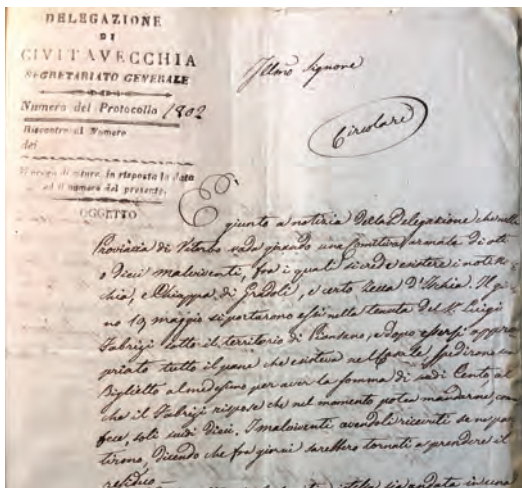 DELEGAZIONE
DI
CIVITAVECCHIA
SEGRETARIATO GENERALE
Numero del Protocollo 1802
Riscontro al Numero
del
Si prega di citare in risposta la data
ed il numero del presente.
OGGETTO
Illmo Signore
Circolare
È giunto a notizia della Delegazione che nella
Provincia di Viterbo vada girando una comitiva armata di otto
o dieci malviventi, fra i quali si crede esistere i noti
chia, e Chiappa di Gradoli, e certo D'Ischia. Il gior
no 19 maggio si portarono essi nella tenuta del Sr. Luigi
Fabrizi sotto il territorio di Piansano, e dopo essersi appro
priato tutto il pane che esisteva nel Casale, spedirono un
Biglietto al medesimo per aver la somma di scudi Cento, al
che il Fabrizi rispose che nel momento potea mandarne, come
fece, soli scudi Dieci. I malviventi avendoli ricevuti se ne par
tirono, dicendo che fra giorni sarebbero tornati a prendere il
residuo —